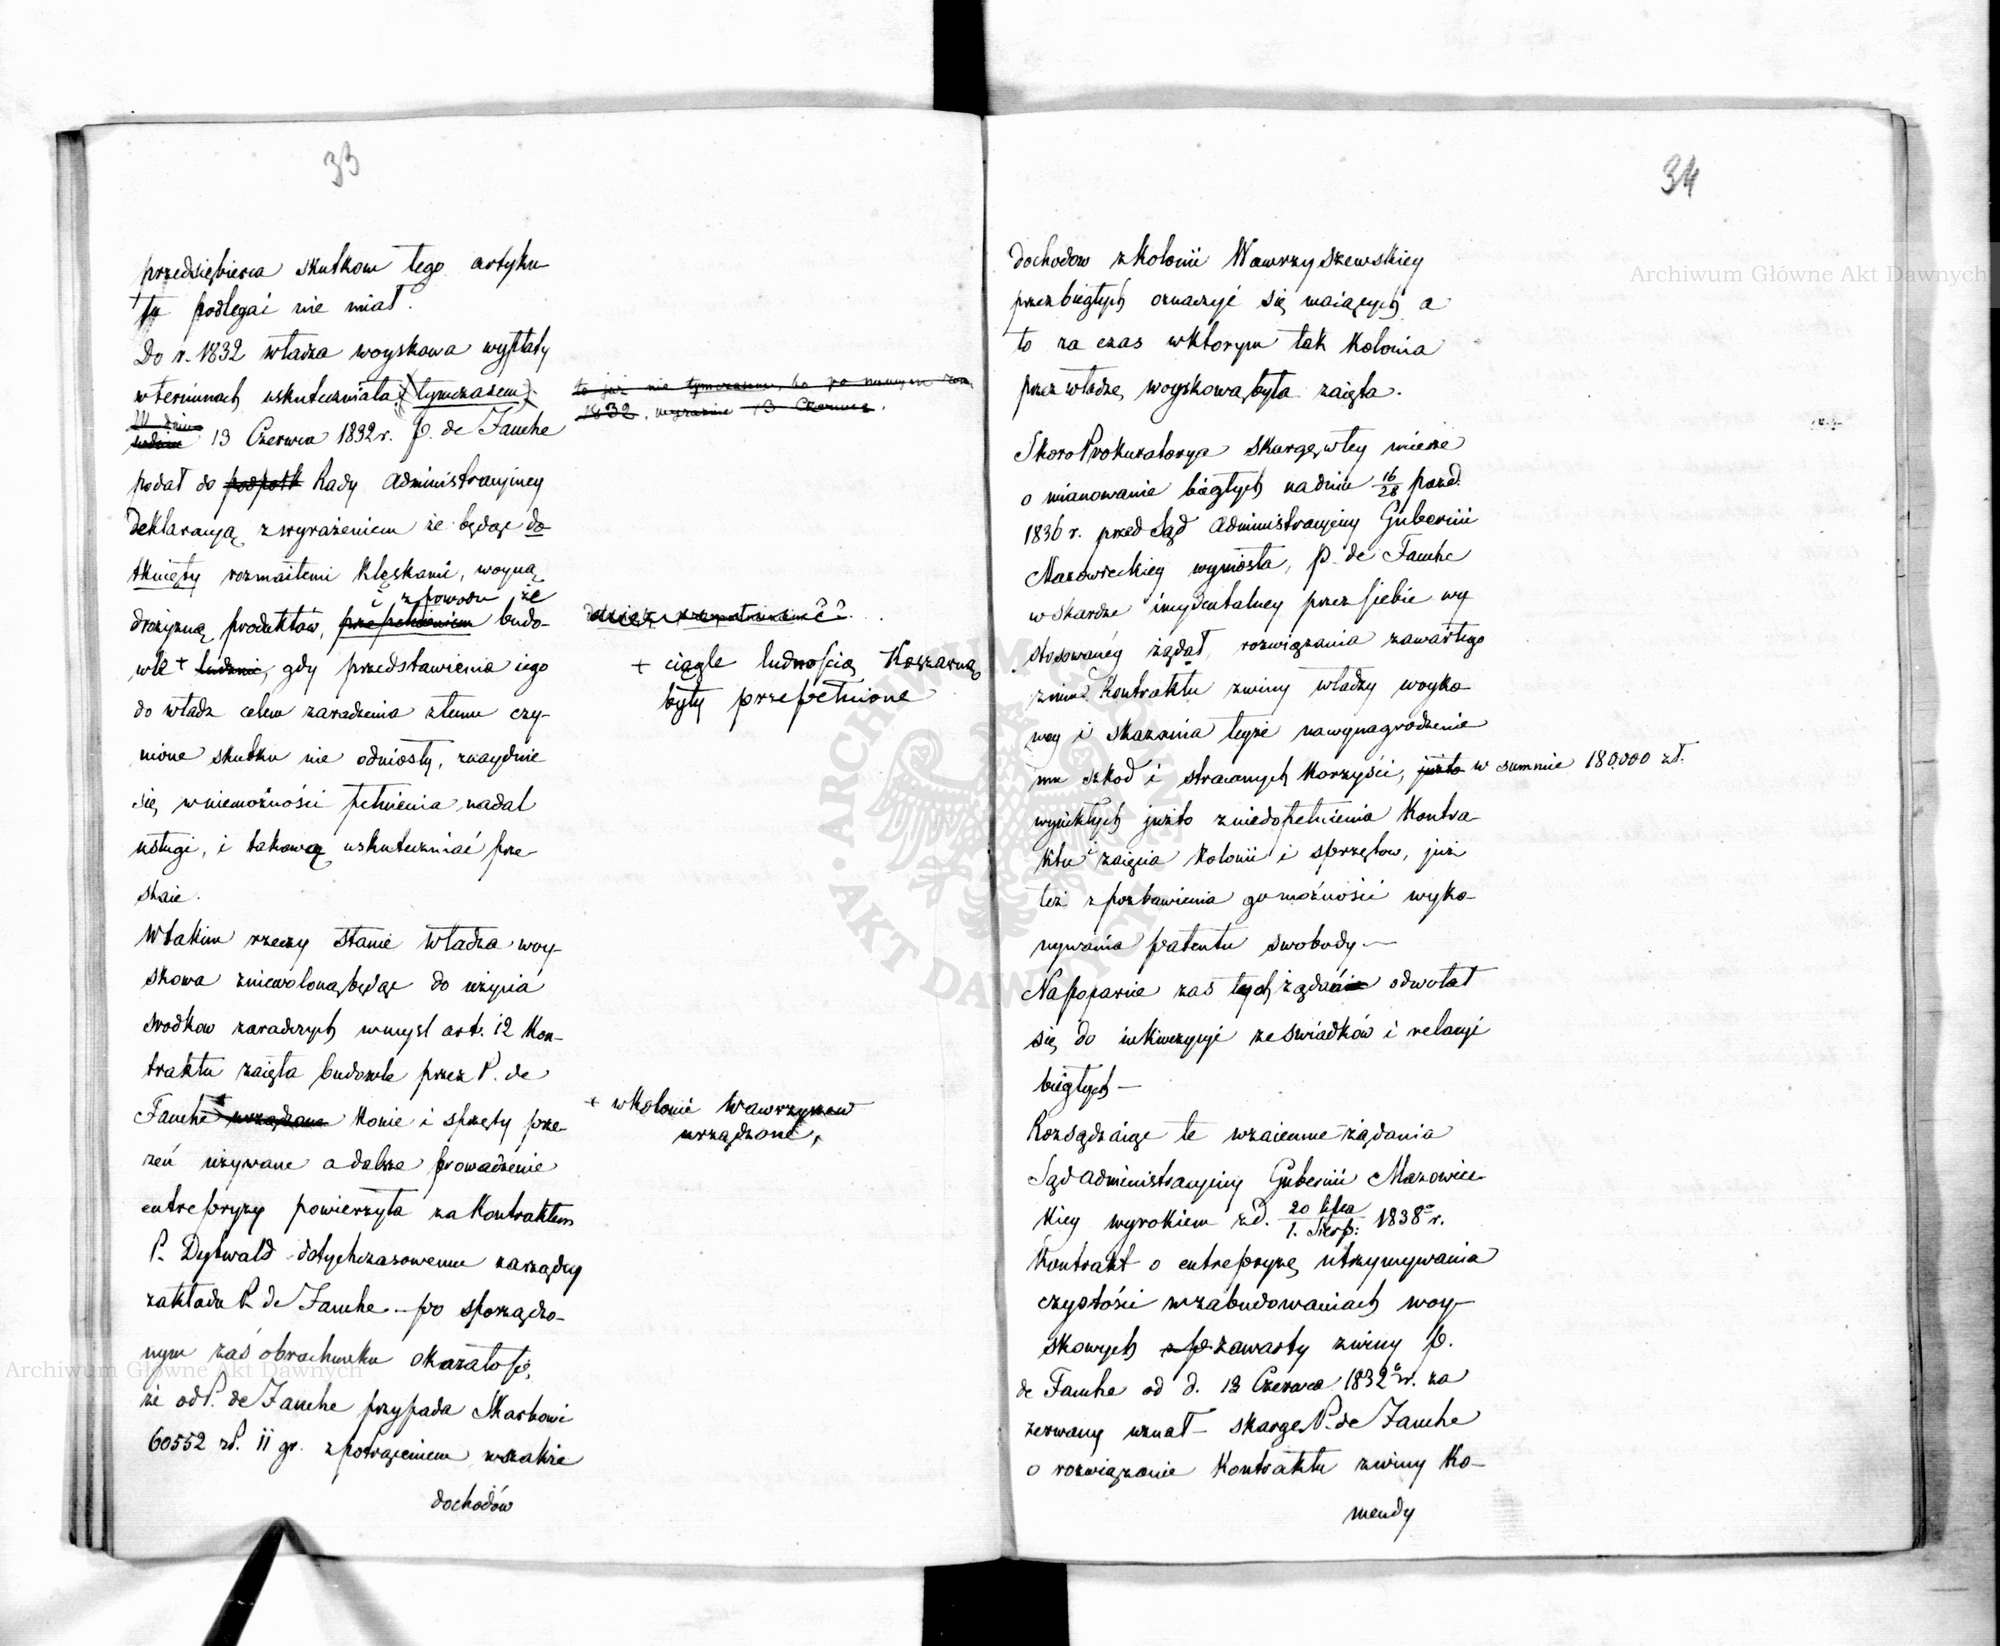 33
przedsiębierca skutkom tego artyku
łu podlegać nie miał.
Do r. 1832 władza woyskowa wypłaty
w terminach uskuteczniała (tymczasem)
to już nie tymczasem, bo po nowym
1832, wyraźnie 13 Czerwca.
W dniu
13 Czerwca 1832 r. P. de Fauche
podał do Rady Administracyiney
Deklaracyą z wyrażeniem że będąc do
tknięty rozmaitemi klęskami, woyną
i z powodu że
drożyzną produktów, przepełnieniem budo-
wle + ludźmi, gdy przedstawienia iego
+ ciągle ludnością Koszarną
były przepełnione
do władz celem zaradzenia złemu czy-
nione skutku nie odniosły, znayduie
się w niemożności pełnienia nadal
usługi, i takową uskuteczniać prze-
staie.
W takim rzeczy stanie władza woy-
skowa zniewoloną będąc do użycia
srodkow zaradczych w mysl art. 12 Kon-
traktu zaięła budowle przez P. de
Fauche + urządzone konie i sprzęty prze-
+ w Kolonii Wawrzyszew
urządzone,
zeń używane a dalsze prowadzenie
entrepryzy powierzyła za Kontraktem
P. Dytwald dotychczasowemu zarządcy
zakładu P. de Fauche — po sporządzo-
nym zaś obrachunku okazało się,
że od P. de Fauche przypada Skarbowi
60552 zł. 11 gr. z potrąceniem wszakże
dochodów
34
dochodow z Kolonii Wawrzyszewskiey
przez biegłych oznaczyć się maiących a
to za czas w ktorym tak Kolonia
przez władzę woyskową była zaięta.
Skoro Prokuratorya skargę w tey mierze
o mianowanie biegłych na dniu 16/28 pazd.
1836 r. przed Sąd Administracyiny Gubernii
Mazowieckiey wyniosła, P. de Fauche
w skardze incydentalney przez siebie wy
stosowanéy żądał, rozwiązania zawartego
z nim Kontraktu z winy władzy woysko-
wey i skazania teyże na wynagrodzenie
mu szkod i straconych korzyści, już to w summie 180,000 zł.
wynikłych już to z niedopełnienia Kontra-
ktu i zaięcia Kolonii i sprzętow, już
też z pozbawienia go możności wyko-
nywania patentu swobody —
Na poparcie zaś tych żądań odwołał
się do inkwizycyi ze swiadków i relacyi
biegłych —
Rozsądzaiąc te wzaiemne żądania
Sąd administracyiny Gubernii Mazowiec-
kiey wyrokiem z d. 20 lipca / 1. Sierp: 1838 r.
Kontrakt o entrepryzę utrzymywania
czystości w zabudowaniach woy-
skowych zawarty z winy P.
de Fauche od d. 13 Czerwca 1832 r. za
zerwany uznał — skargę P. de Fauche
o rozwiązanie Kontraktu z winy Ko-
mendy
Archiwum Główne Akt Dawnych
Archiwum Główne Akt Dawnych